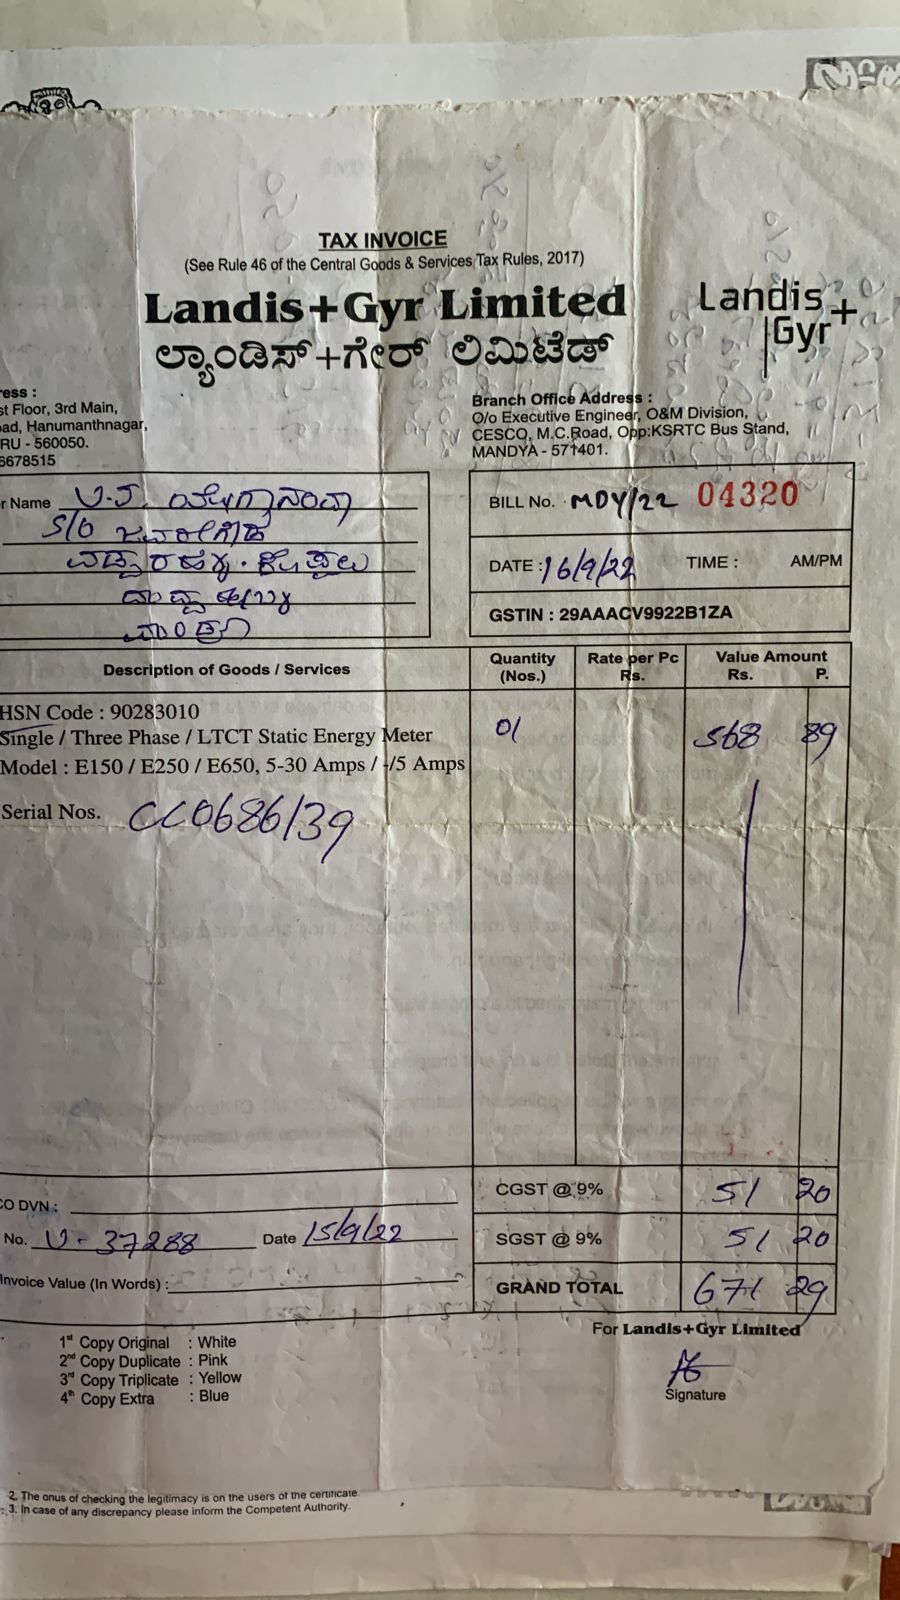 TAX INVOICE
(See Rule 46 of the Central Goods & Services Tax Rules, 2017)
Landis+Gyr Limited
ಲ್ಯಾಂಡಿಸ್+ಗೇರ್ ಲಿಮಿಟೆಡ್
Landis+
Gyr
ess :
st Floor, 3rd Main,
ad, Hanumanthnagar,
RU - 560050.
6678515
Branch Office Address :
O/o Executive Engineer, O&M Division,
CESCO, M.C.Road, Opp:KSRTC Bus Stand,
MANDYA - 571401.
r Name
S/O
BILL No. MDY/22 04320
DATE : 16/9/22 TIME : AM/PM
GSTIN : 29AAACV9922B1ZA
Description of Goods / Services
Quantity (Nos.)
Rate per Pc Rs.
Value Amount Rs. P.
HSN Code : 90283010
Single / Three Phase / LTCT Static Energy Meter 01 568 89
Model : E150 / E250 / E650, 5-30 Amps / -/5 Amps
Serial Nos. CC0686139
CGST @ 9% 51 20
CO DVN :
No. U-37288 Date 15/9/22
SGST @ 9% 51 20
Invoice Value (In Words) :
GRAND TOTAL 671 29
For Landis+Gyr Limited
1st Copy Original : White
2nd Copy Duplicate : Pink
3rd Copy Triplicate : Yellow
4th Copy Extra : Blue
Signature
2. The onus of checking the legitimacy is on the users of the certificate.
3. In case of any discrepancy please inform the Competent Authority.